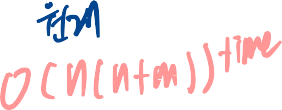 현재
O(n(n+m)) time